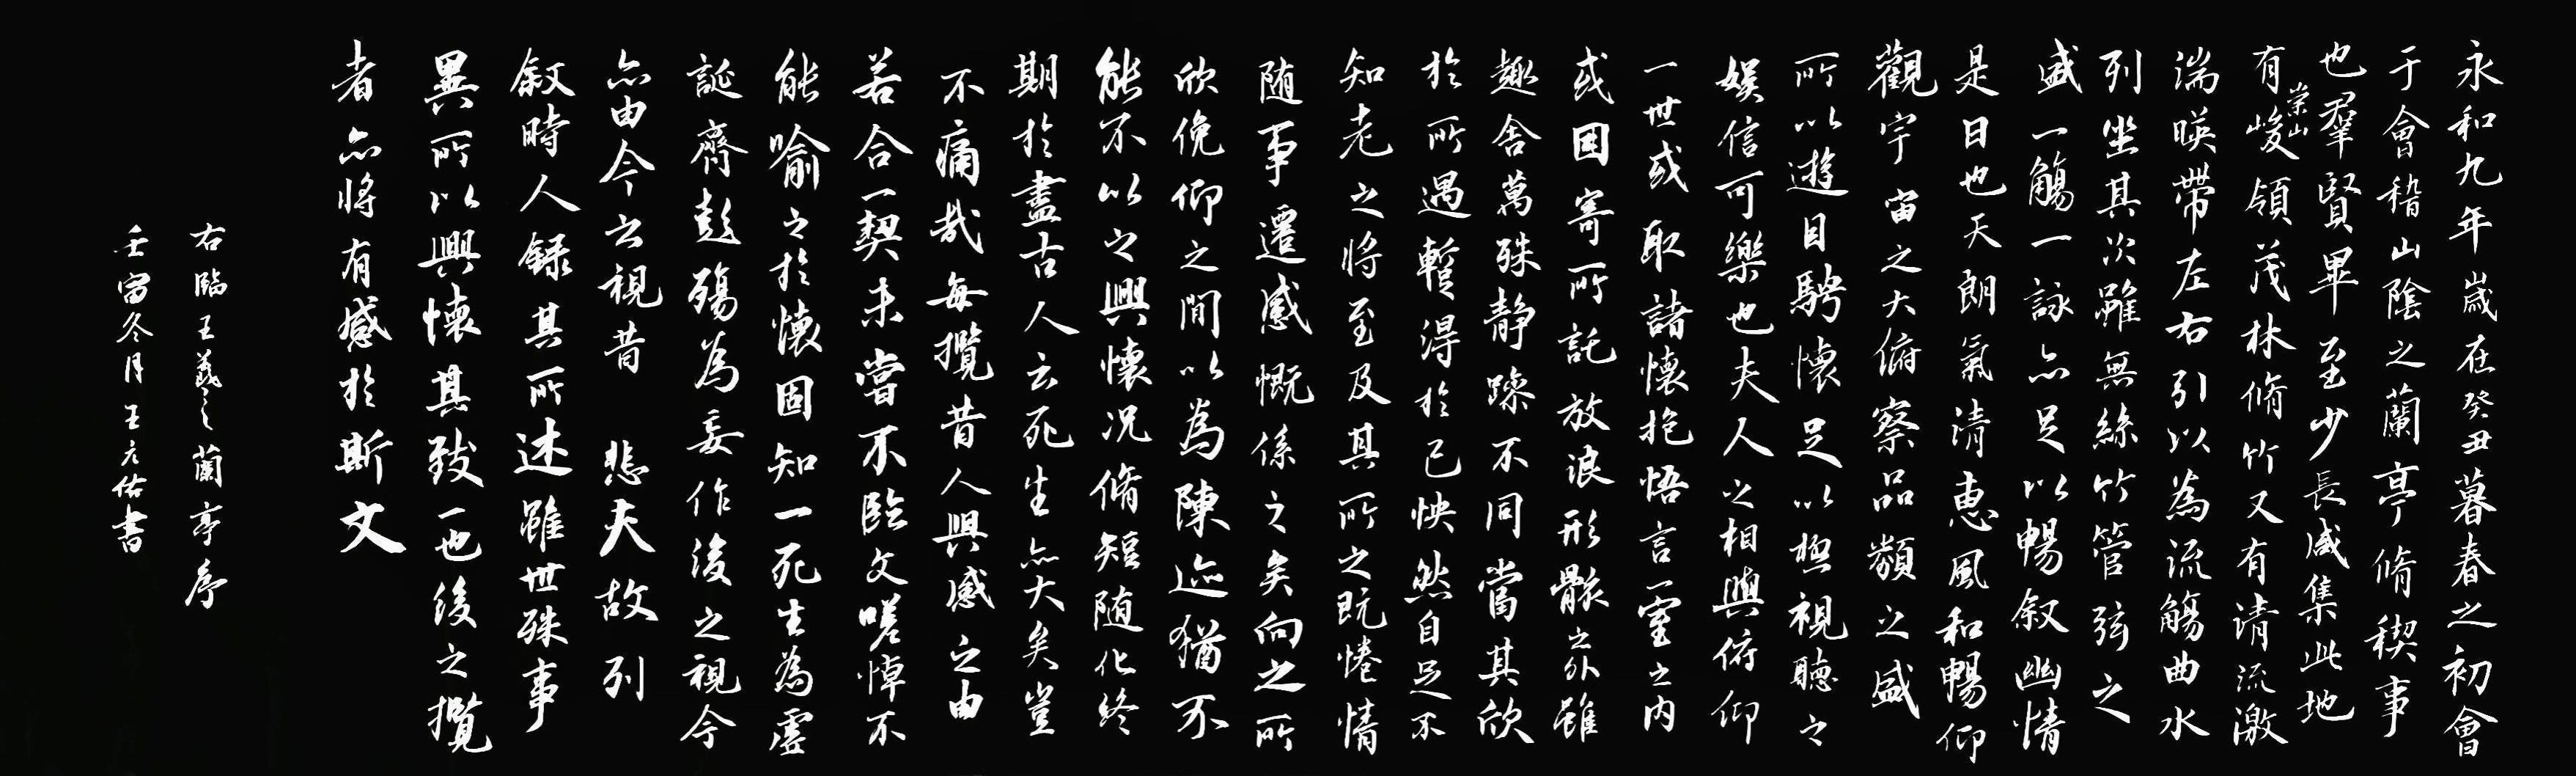 永和九年歲在癸丑暮春之初會
于會稽山陰之蘭亭脩稧事
也羣賢畢至少長咸集此地
有崇山峻領茂林脩竹又有清流激
湍暎帶左右引以為流觴曲水
列坐其次雖無絲竹管弦之
盛一觴一詠亦足以暢叙幽情
是日也天朗氣清惠風和暢仰
觀宇宙之大俯察品類之盛
所以遊目騁懷足以極視聽之
娛信可樂也夫人之相與俯仰
一世或取諸懷抱悟言一室之內
或因寄所託放浪形骸之外雖
趣舍萬殊静躁不同當其欣
於所遇暫得於己怏然自足不
知老之將至及其所之既惓情
随事遷感慨係之矣向之所
欣俛仰之閒以為陳迹猶不
能不以之興懷況脩短随化終
期於盡古人云死生亦大矣豈
不痛哉每攬昔人興感之由
若合一契未嘗不臨文嗟悼不
能喻之於懷固知一死生為虛
誕齊彭殤為妄作後之視今
亦由今之視昔 悲夫故列
叙時人録其所述雖世殊事
異所以興懷其致一也後之攬
者亦將有感於斯文
右臨王羲之蘭亭序
壬寅冬月王元佑書